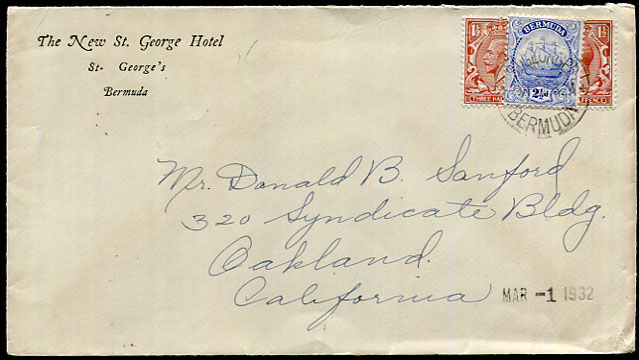 The New St. George Hotel
St. George's
Bermuda
1½
BERMUDA
1½
2½
BERMUDA
Mr. Donald B. Sanford
320 Syndicate Bldg.
Oakland
California
MAR -1 1932